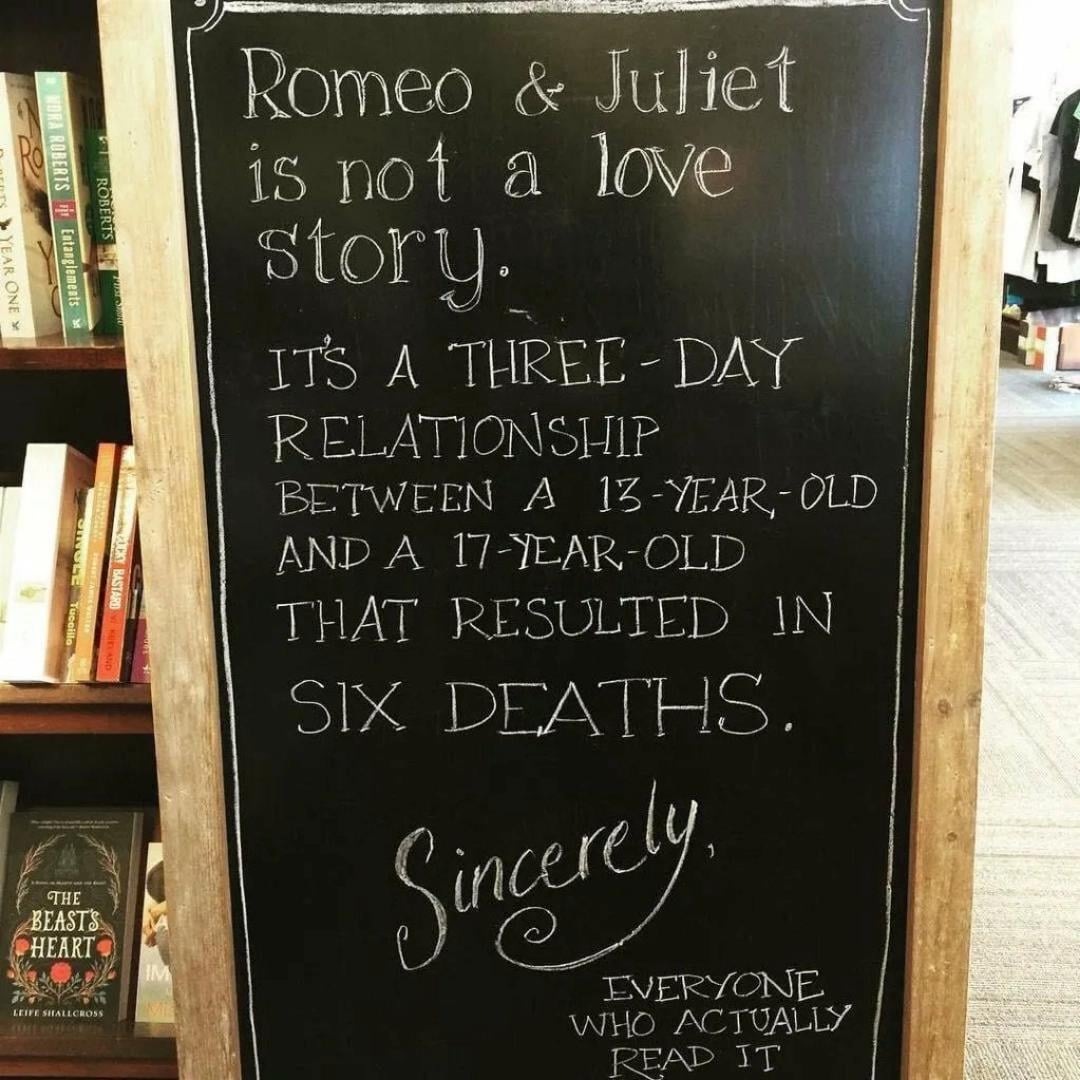 Romeo & Juliet
is not a love
story.
IT'S A THREE-DAY
RELATIONSHIP
BETWEEN A 13-YEAR-OLD
AND A 17-YEAR-OLD
THAT RESULTED IN
SIX DEATHS.
Sincerely,
EVERYONE
WHO ACTUALLY
READ IT
YEAR ONE
NORA ROBERTS
Entanglements
ROBERTS
Tuccillo
BASTARD
THE
BEAST'S
HEART
LEIFE SHALLCROSS
IM